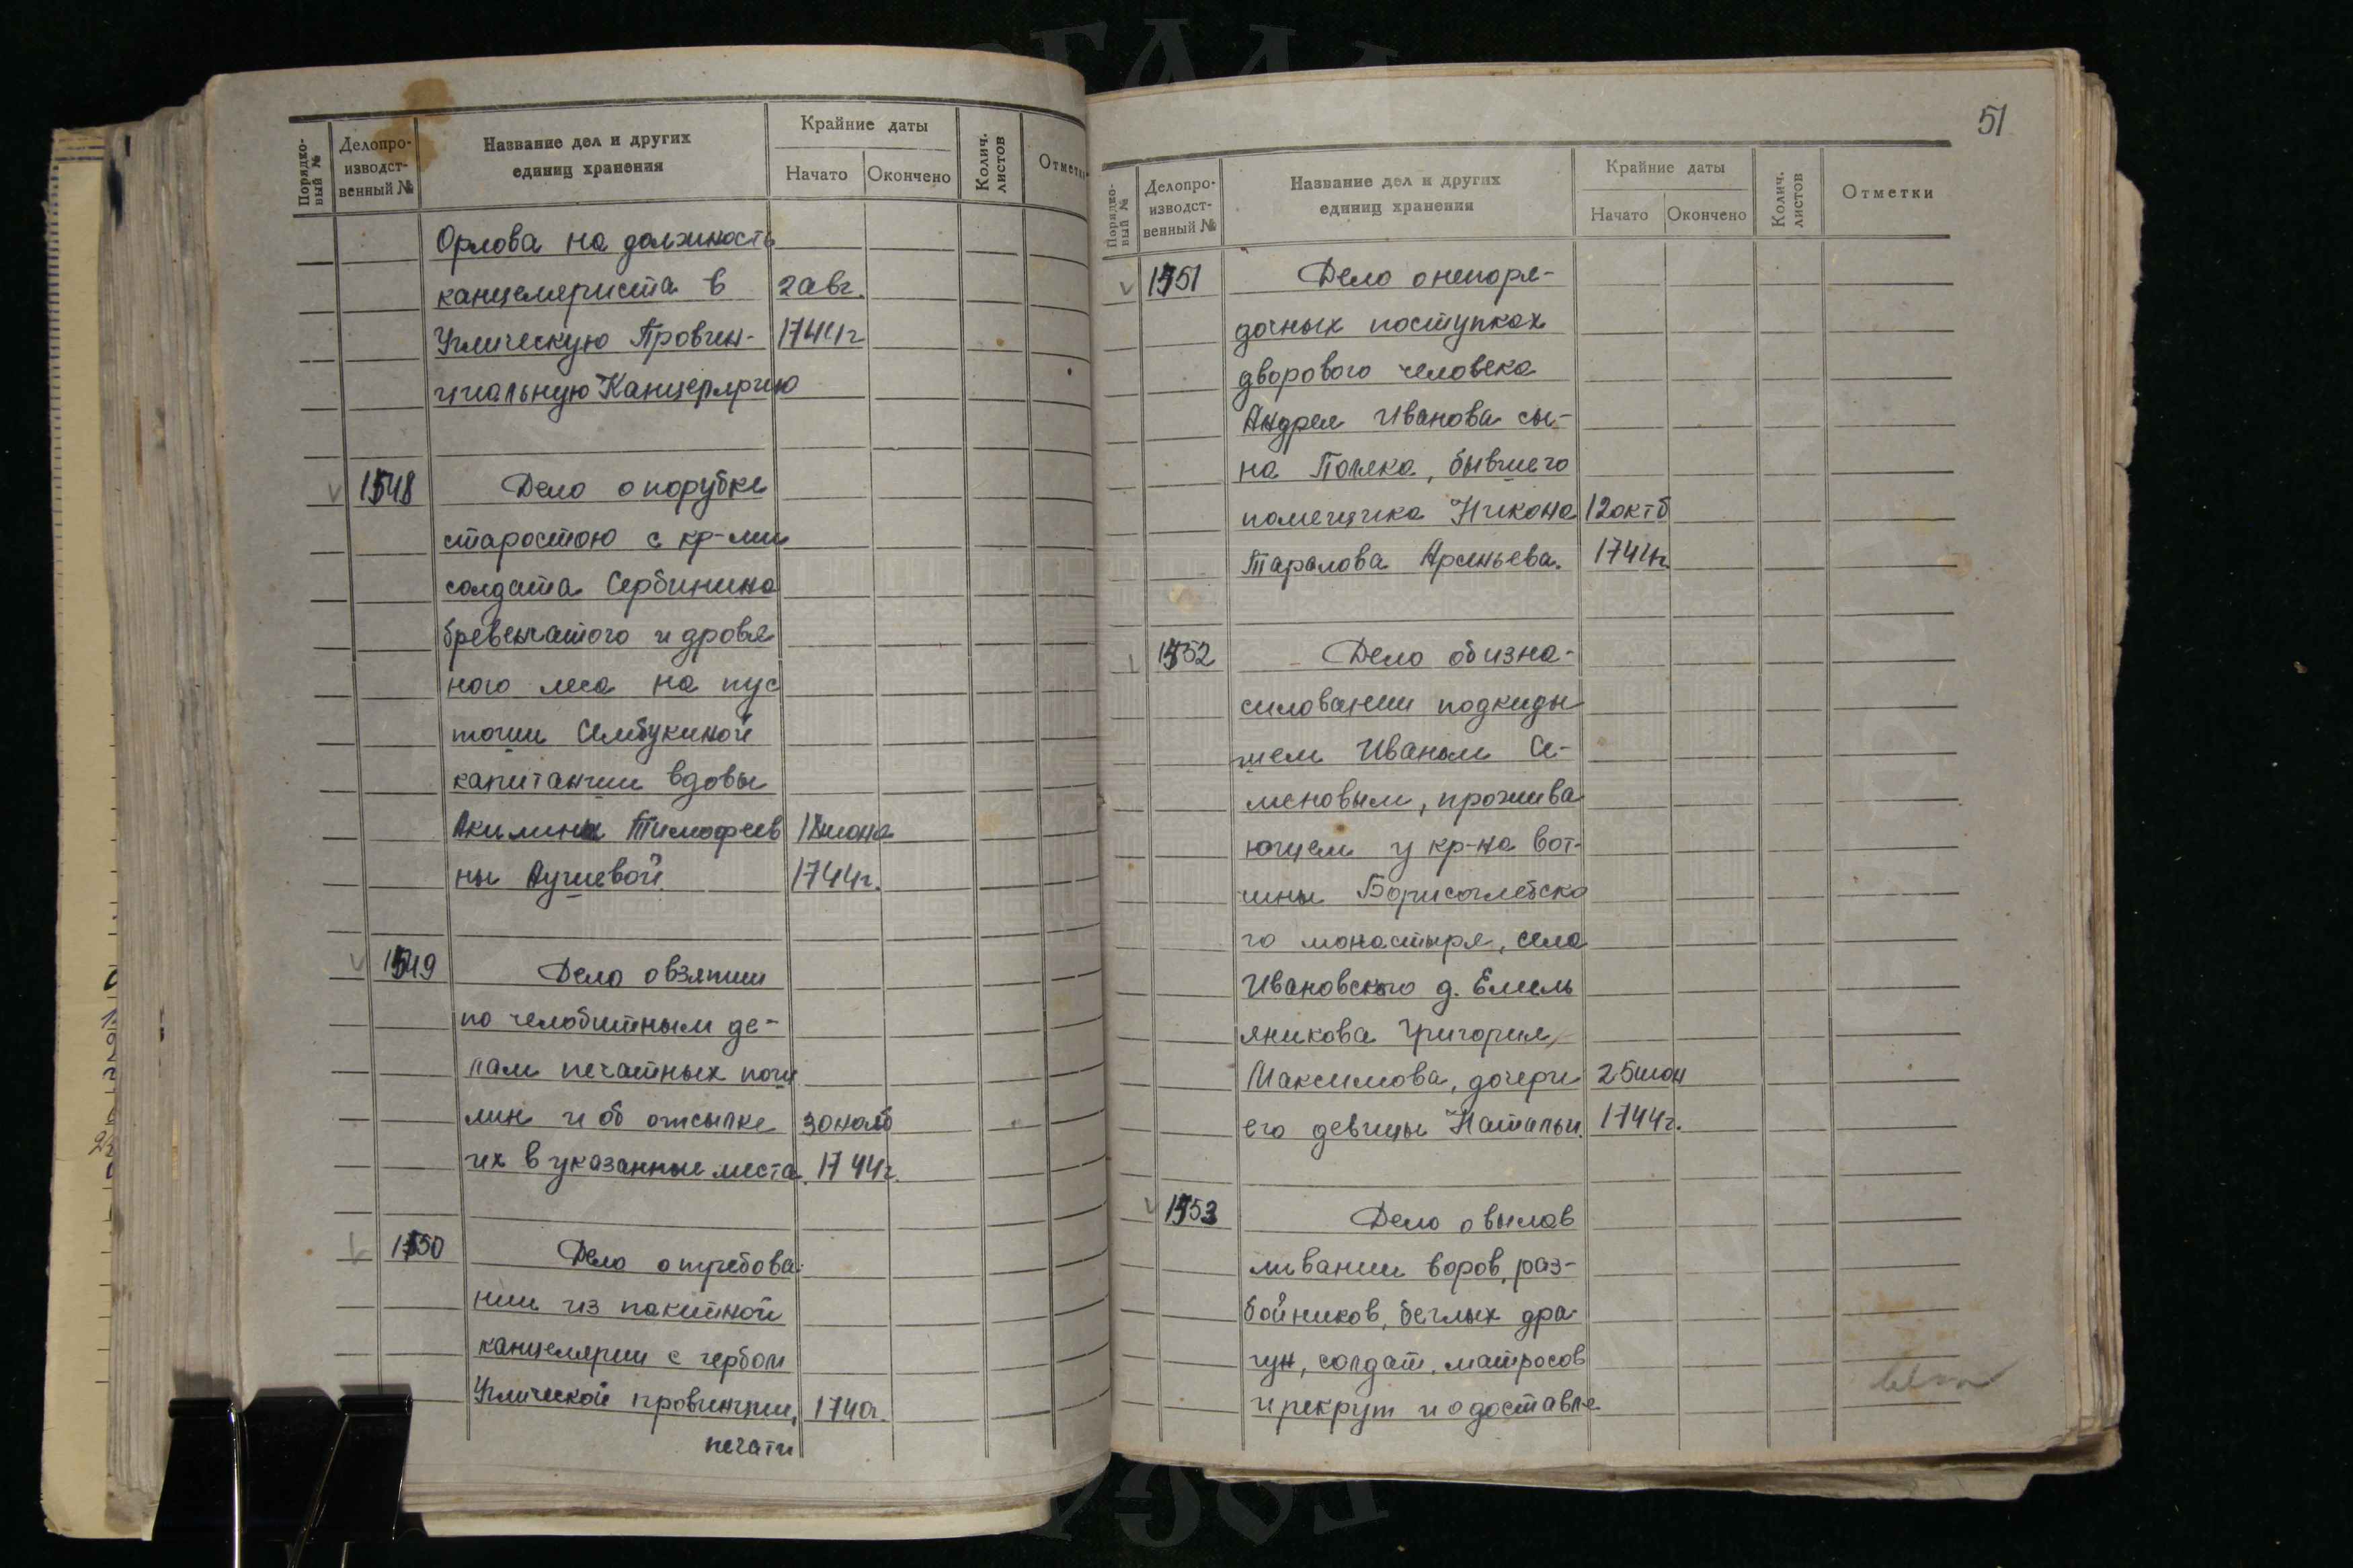 Порядко-
вый №
Делопро-
изводст-
венный №
Название дел и других
единиц хранения
Крайние даты
Начато
Окончено
Колич.
листов
Отметки
Орлова на должность
канцеляриста в 2 авг.
Угличскую Провин- 1744 г
циальную Канцелярию
1548 Дело о порубке
старостою с кр-ми
солдата Сербинина
бревенчатого и дровя
ного леса на пус
тоши Селибукиной
капитанши вдовы
Акилины Тимофеев 18 июня
ны Ачуевой. 1744 г.
1549 Дело о взятии
по челобитным де-
лам печатных пош
лин и об отсылке 30 нояб
их в указанные места. 1744 г.
1550 Дело о требова
нии из пакитной
канцелярии с гербом
Угличской провинции, 1740 г.
печати
51
Порядко-
вый №
Делопро-
изводст-
венный №
Название дел и других
единиц хранения
Крайние даты
Начато
Окончено
Колич.
листов
Отметки
1551 Дело о непоря-
дочных поступках
дворового человека
Андрея Иванова сы-
на Поляка, бывшего
помещика Никона 12 октб
Таралова Арсеньева. 1744 г.
1552 Дело об изна-
силовании подкиды
шем Иваном Се-
меновым, прожива
ющем у кр-на вот-
чины Борисоглебско
го монастыря, села
Ивановского д. Емель
яникова Григория
Максимова, дочери 25 июн
его девицы Натальи. 1744 г.
1553 Дело о вылав
ливании воров, раз-
бойников, беглых дра-
гун, солдат, матросов
и рекрут и о доставле